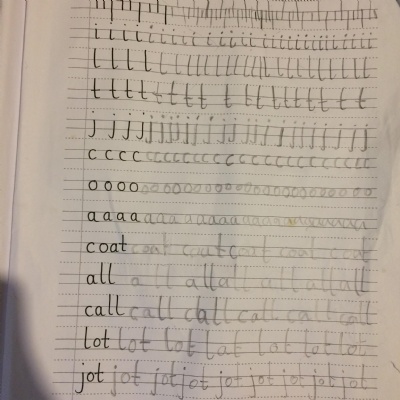 i i i i i i i i i i i i i i i i i i i i i
l l l l l l l l l l l l l l l l l l l
t t t t t t t t t t t t t t t t t t
j j j j j j j j j j j j j j j j j j j
c c c c c c c c c c c c c c c c c c c c c
o o o o o o o o o o o o o o o o o o o o
a a a a a a a a a a a a a a a a a a
coat coat coat coat coat coat
all a ll all all all all all
call call call call call call call
lot lot lot lot lot lot lot
jot jot jot jot jot jot jot jot jot